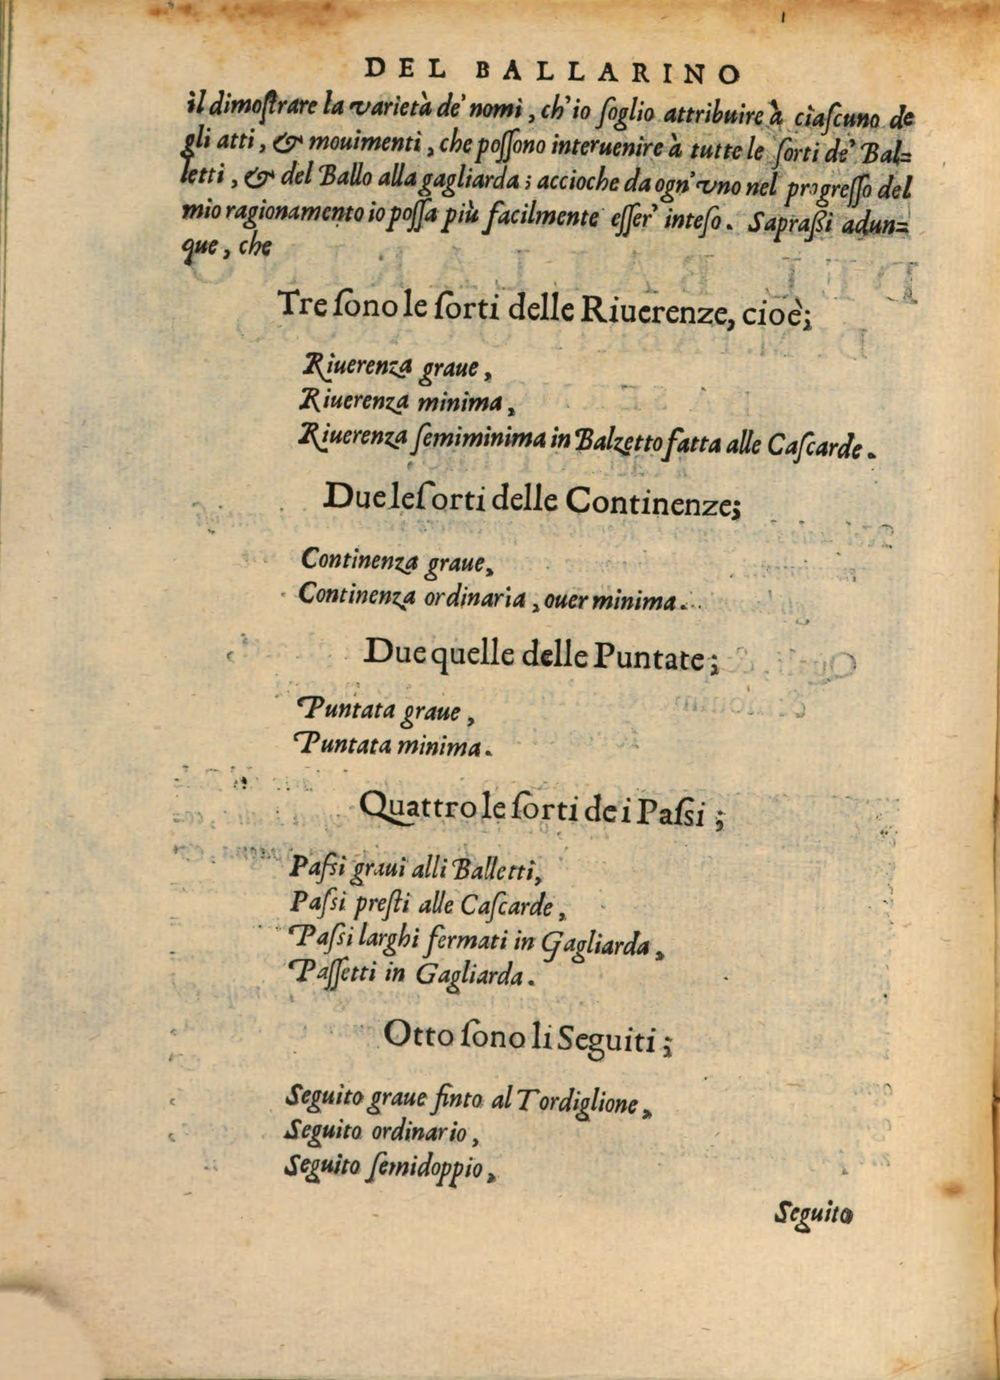 DEL BALLARINO
il dimoſtrare la varietà de' nomi, ch'io ſoglio attribuire à ciaſcuno de
gli atti, & mouimenti, che poſſono interuenire à tutte le ſorti de' Bal=
letti, & del Ballo alla gagliarda; accioche da ogn'vno nel progreſſo del
mio ragionamento io poſſa più facilmente eſſer' inteſo. Sapraßi adun=
que, che
Tre ſono le ſorti delle Riuerenze, cioè;
Riuerenza graue,
Riuerenza minima,
Riuerenza ſemiminima in Balzetto fatta alle Caſcarde.
Due le ſorti delle Continenze;
Continenza graue,
Continenza ordinaria, ouer minima.
Due quelle delle Puntate;
Puntata graue,
Puntata minima.
Quattro le ſorti de i Paſsi;
Paßi graui alli Balletti,
Paſsi preſti alle Caſcarde,
Paſsi larghi fermati in Gagliarda,
Paſſetti in Gagliarda.
Otto ſono li Seguiti;
Seguito graue finto al Tordiglione,
Seguito ordinario,
Seguito ſemidoppio,
Seguito